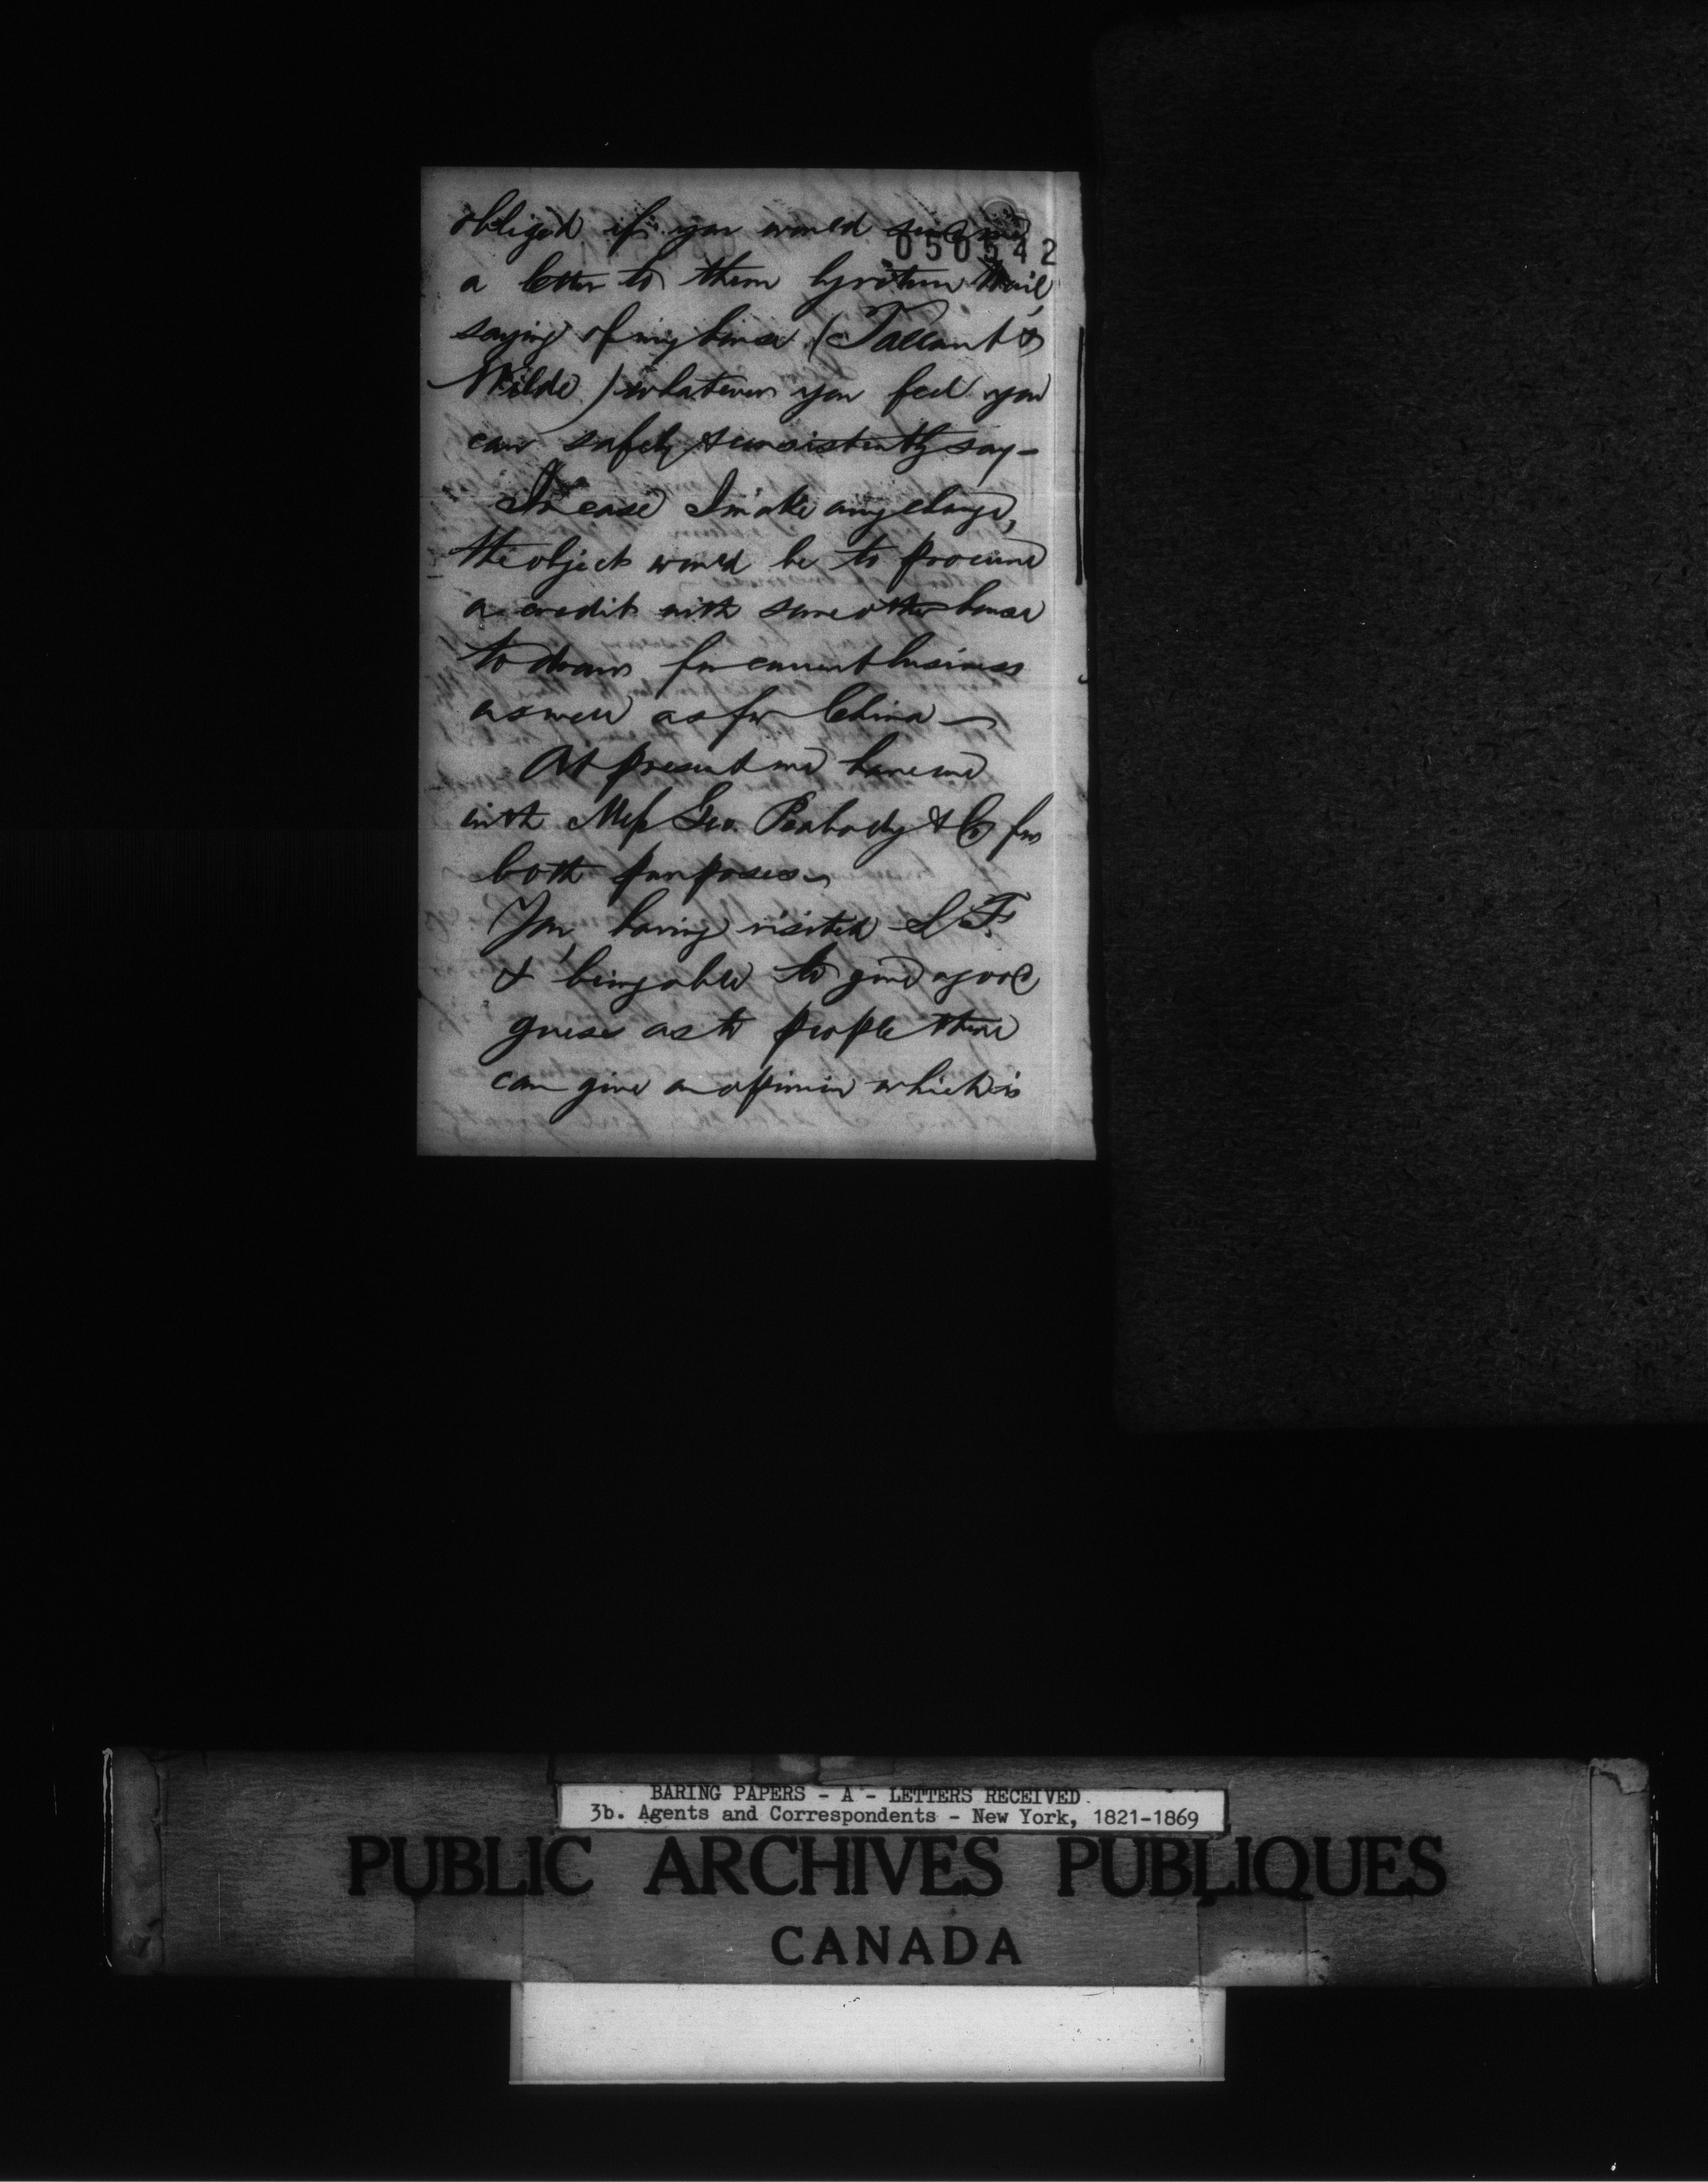 obliged if you would send me
050542
a letter to them by return Mail,
saying of my house (Tallant &
Wilde) whatever you feel you
can safely & consistently say –
In case I make any change,
the object would be to procure
a credit with some other house
to draw for current business
as well as for China –
At present we have one
with Mess Geo. Peabody & Co for
both purposes –
You, having visited S F.
& being able to give a good
guess as to people there
can give an opinion which is
BARING PAPERS - A - LETTERS RECEIVED.
3b. Agents and Correspondents - New York, 1821-1869
PUBLIC ARCHIVES PUBLIQUES
CANADA